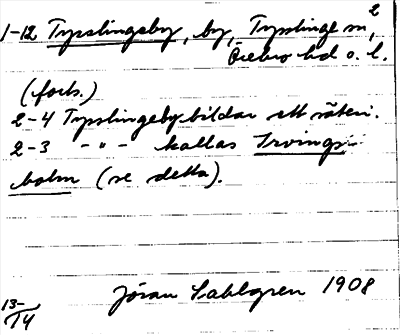 2
1-12 Tysslingeby, by, Tysslinge sn,
Örebro hd o. l.
(forts.)
2-4 Tysslingeby bildar ett säteri.
2-3 -"- kallas Irvings-
holm (se detta).
Jöran Sahlgren 1908
13-
14